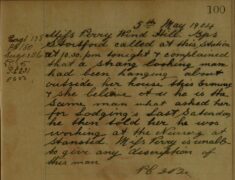 100
5th May 1924
Miss Perry Wind Hill Bps
Stortford called at this station
at 10.30 pm tonight & complained
that a strang looking man
had been hanging about
outside her house this evening
& she believed it he is the
same man what asked her
for Lodgings last Saturday
he then told her he was
working at the Nursery at
Stansted. Miss Perry is unable
to give any discription of
this man